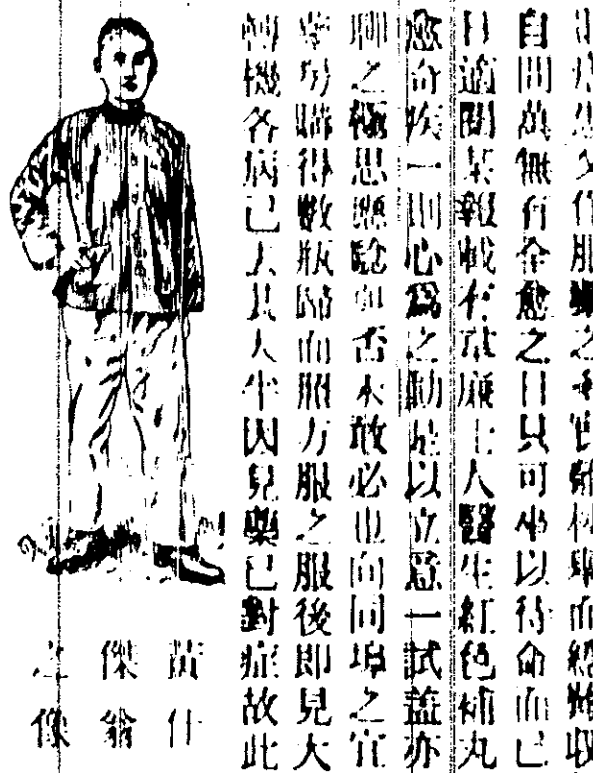 自問萬無有全愈之日只可坐以待命而已
日適閱某報載有韋廉士大醫生紅色補丸
愈奇疾一則心爲之動是以立意一試蓋亦
聊之極思應驗與否未敢必也向同埠之官
藥房購得數瓶歸而照方服之服後即見大
轉機各病已去其大半因見藥已對症故此
黃仕
傑翁
之像